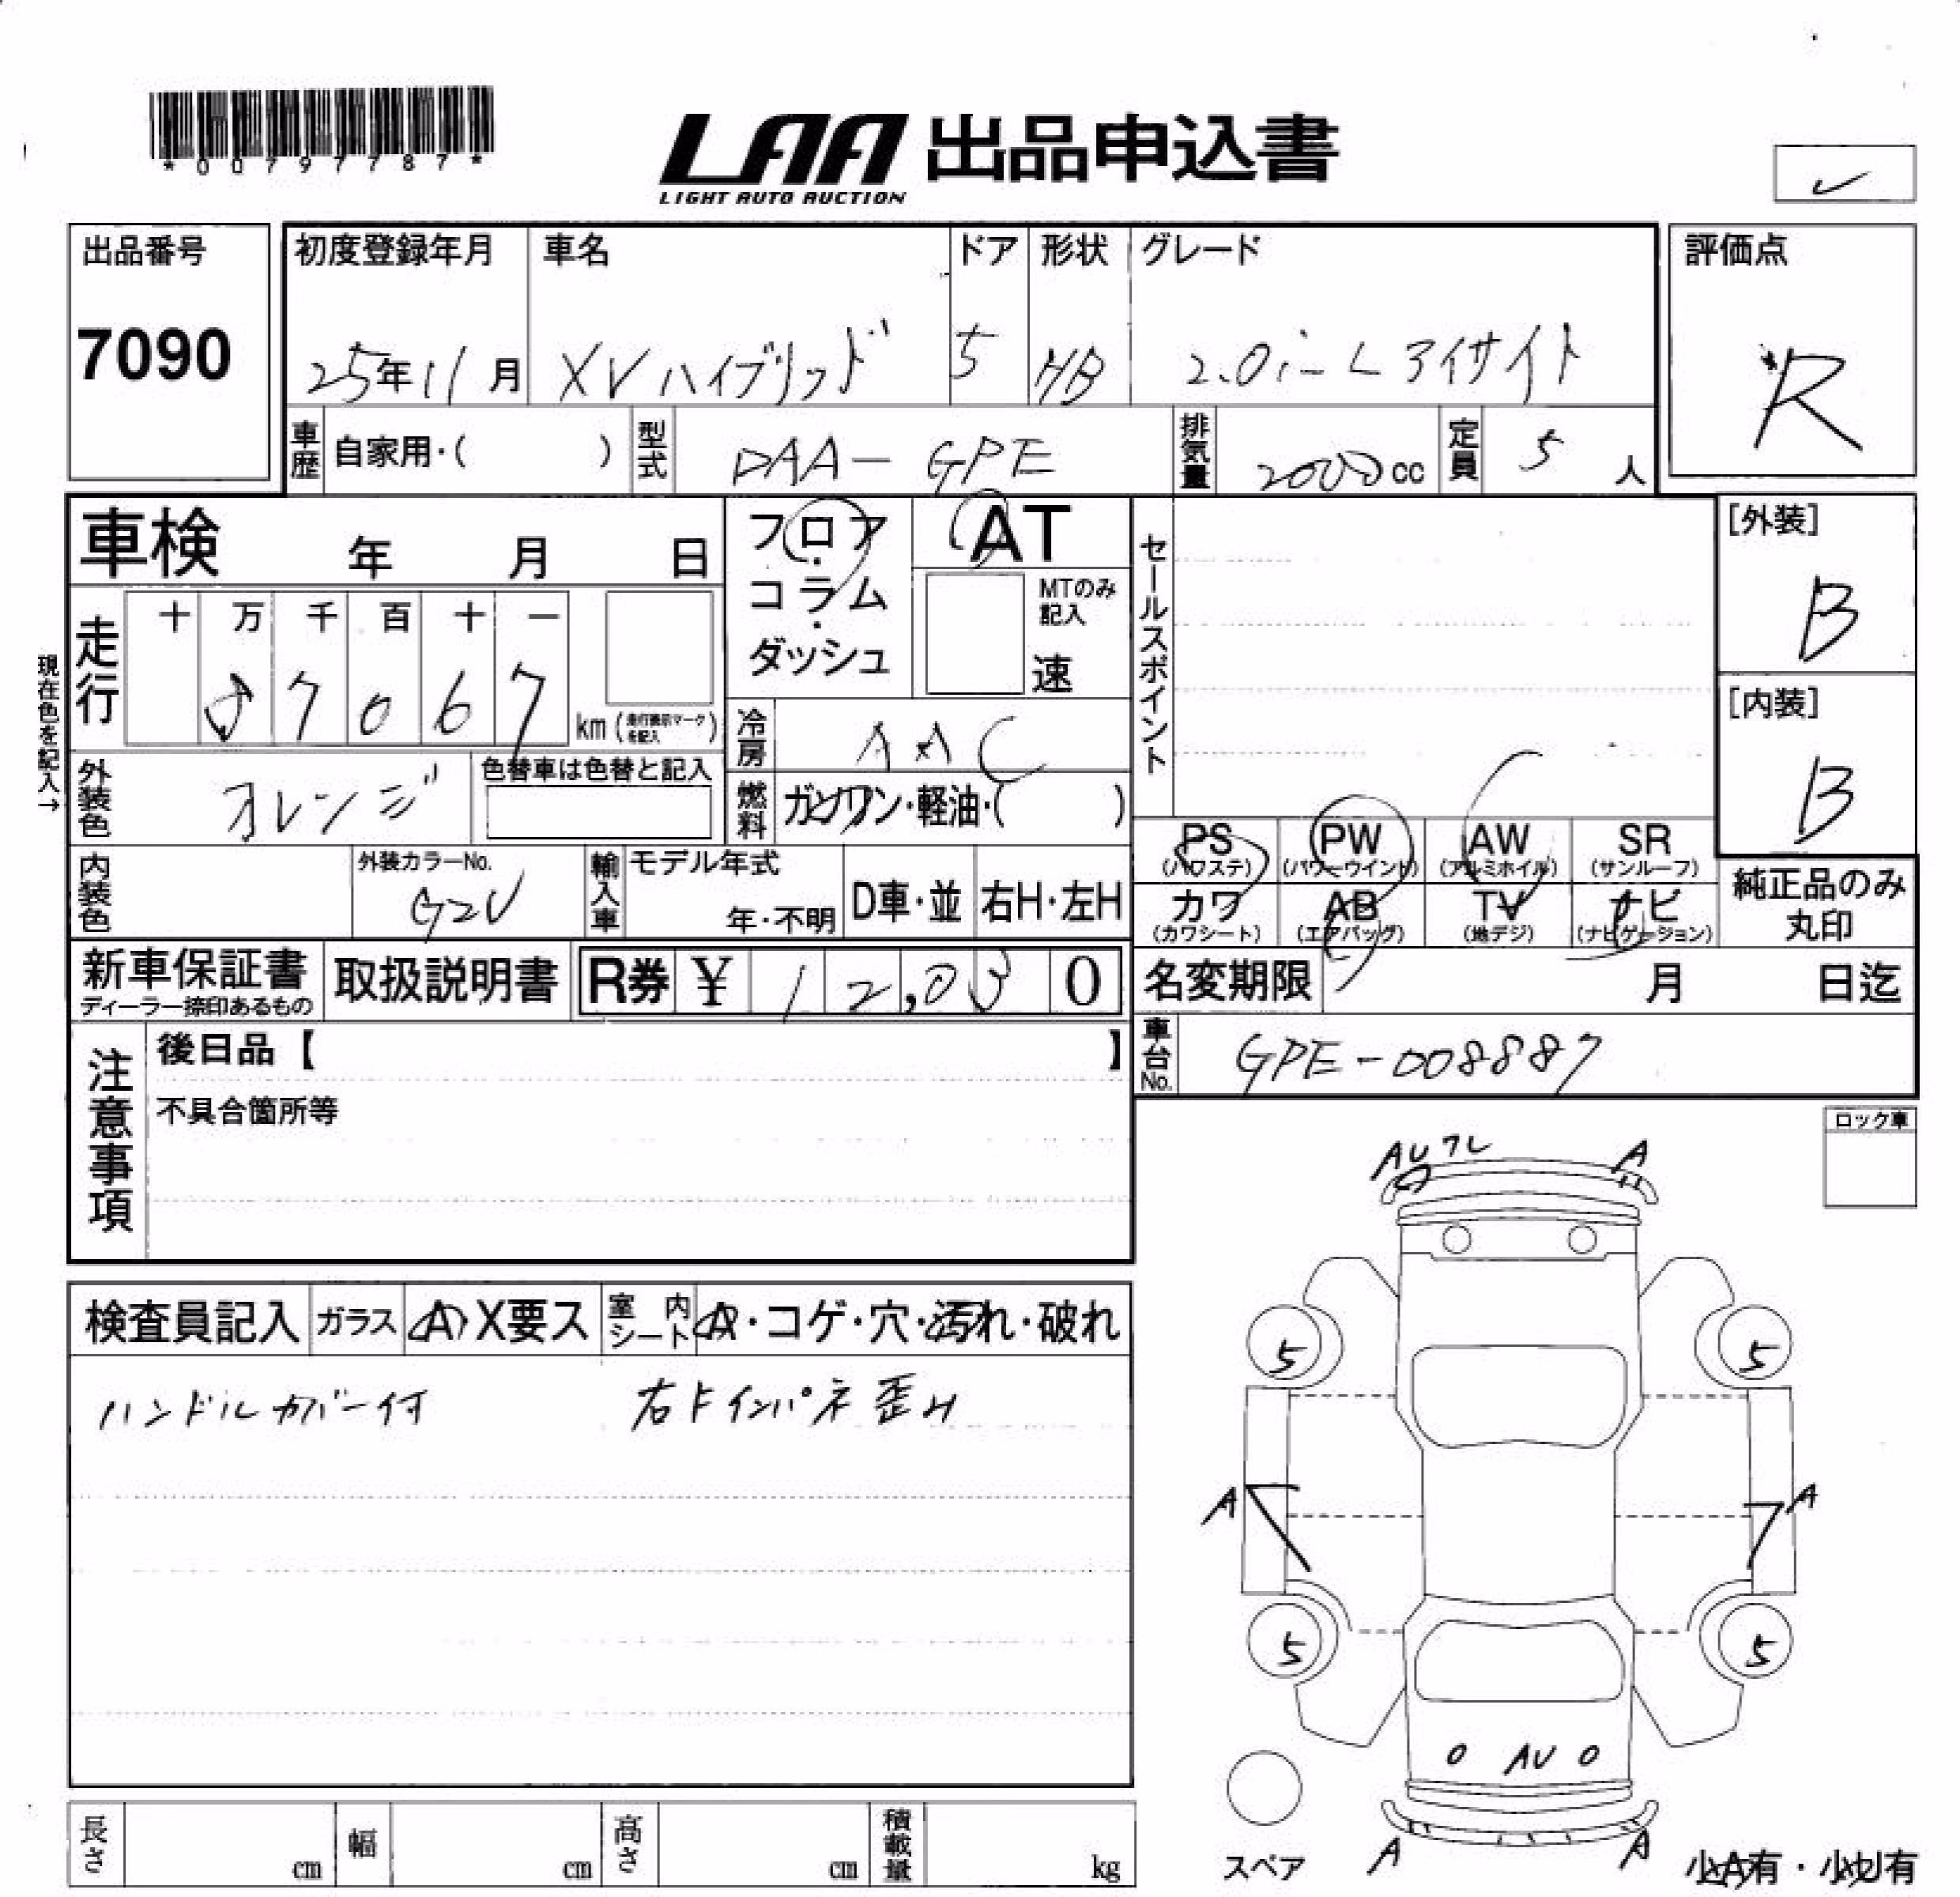 *00797787*
LAA 出品申込書
LIGHT AUTO AUCTION
出品番号
7090
初度登録年月
25年11月
車名
XVハイブリッド
ドア
5
形状
HB
グレード
2.0i-L アイサイト
評価点
R
車歴 自家用・( )
型式 DAA-GPE
排気量 2000cc
定員 5人
車検 年 月 日
フロア・コラム・ダッシュ
AT
MTのみ記入
速
セールスポイント
[外装]
B
[内装]
B
現在色を記入→
走行
十 万 千 百 十 一
7 0 6 7
km (走行表示マークを記入)
冷房 AAC
外装色 オレンジ
色替車は色替と記入
燃料 ガソリン・軽油・( )
PS (パワステ)
PW (パワーウインド)
AW (アルミホイル)
SR (サンルーフ)
カワ (カワシート)
AB (エアバッグ)
TV (地デジ)
ナビ (ナビゲーション)
純正品のみ丸印
内装色
外装カラーNo.
G2U
輸入車
モデル年式
年・不明
D車・並
右H・左H
新車保証書
ディーラー捺印あるもの
取扱説明書
R券 ¥ 12,030
名変期限 月 日迄
車台No. GPE-008887
注意事項
後日品【 】
不具合箇所等
ロック車
検査員記入
ガラス A X要ス
室内シート A・コゲ・穴・汚れ・破れ
ハンドルカバー付
右Fインパネ歪ミ
AUワレ A
5 5
A A
5 5
0 AU 0
A A
スペア
少A有・少U有
長さ cm
幅 cm
高さ cm
積載量 kg